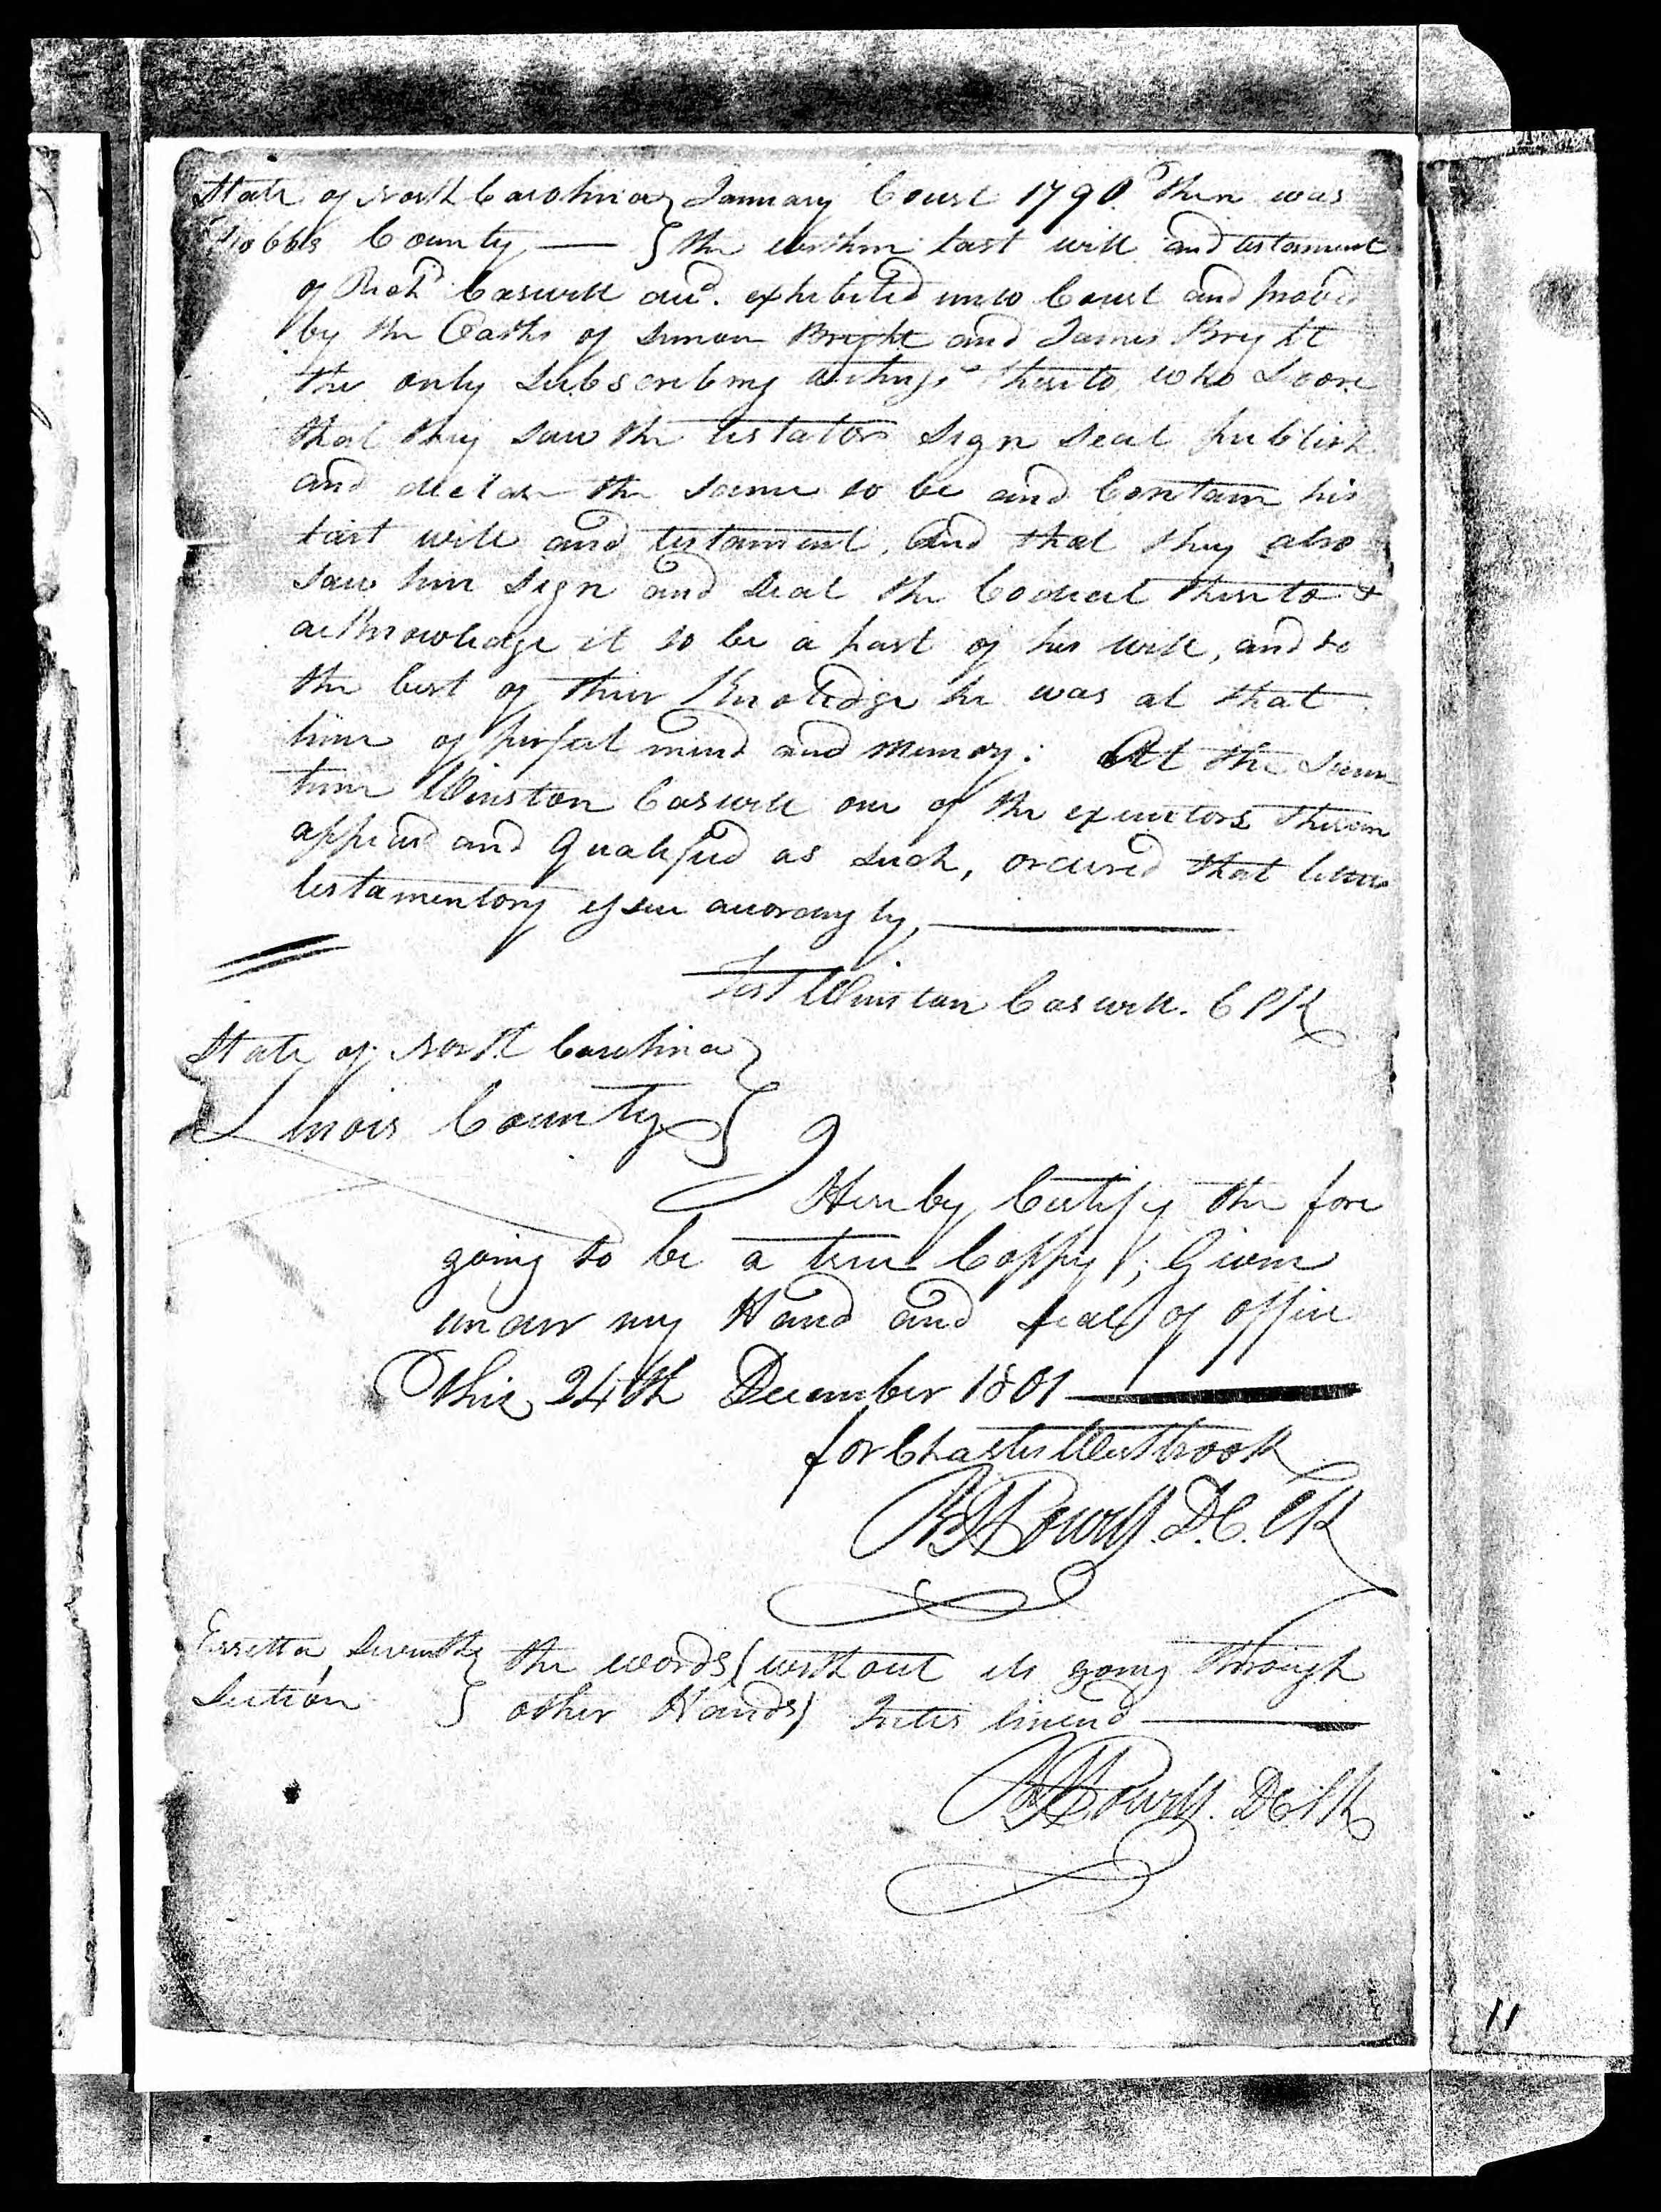 State of North Carolina } January Court 1790. Then was
Dobbs County — } the within last will and testament
of Richd Caswell decd. exhibited into Court and proved
by the Oaths of Simon Bright and James Bright
the only subscribing witness thereto, who swore
that they saw the testator sign seal publish
and declare the same to be and Contain his
last will and testament, And that they also
saw him sign and seal the Codicil thereto &
acknowledge it to be a part of his will, and to
the best of their Knolidge he was at that
time of perfect mind and memory: At the same
time Winston Caswell one of the executors therein
appeard and Qualified as such, ordered that letters
testamentory issue accordingly,
Test Winston Caswell. C Clk
State of North Carolina }
Lenoir County }
I Hereby Certify the fore
going to be a true Coppy; Given
under my Hand and seal of office
this 24th December 1801
for Charles Westbrook
Powell. D.C. Clk
Erretta, Seventh } the words (without its going through
Section } other Hands) Inter lined
Powell. DC Clk
11